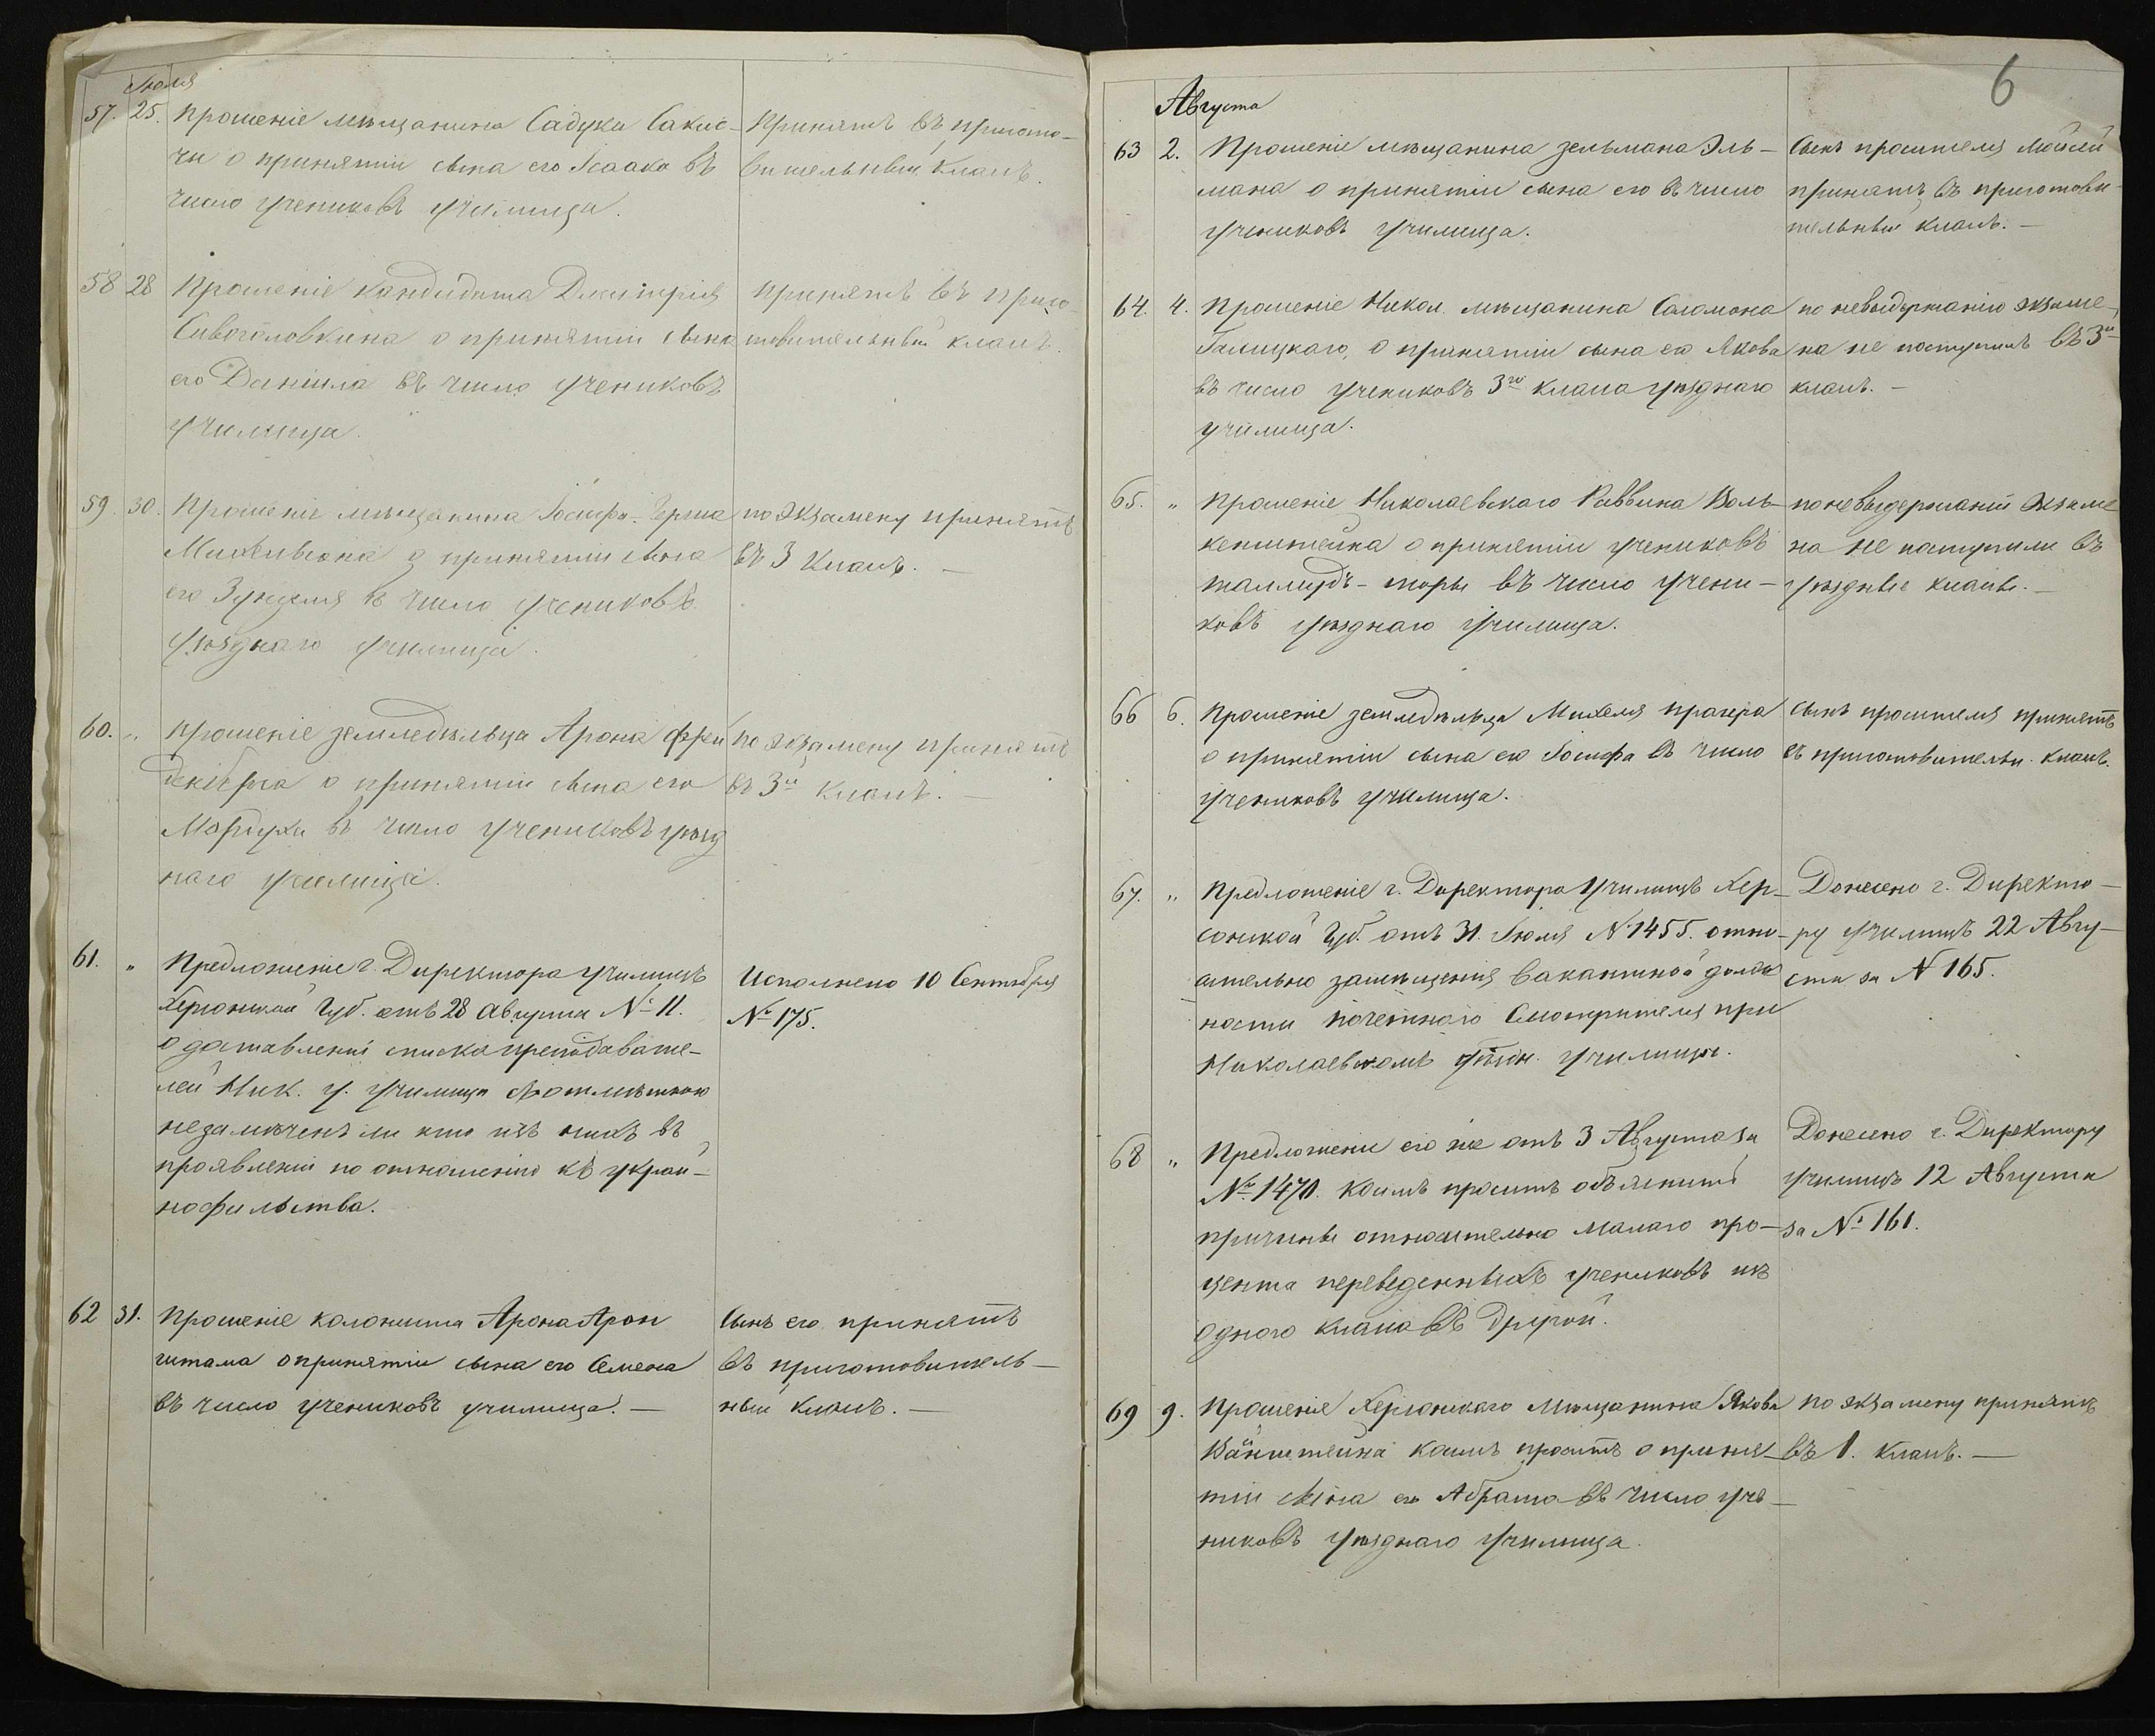 Іюля
57. 25. Прошеніе мѣщанина Садука Сакис-
чи о принятіи сына его Исаака въ
число учениковъ училища.
Принятъ въ пригото-
вительный классъ.
58 28 Прошеніе кандидата Дмитрія
Сивоголовкина о принятіи сына
его Даніила въ число учениковъ
училища.
принятъ въ приго-
товительный классъ.
59. 30. Прошеніе мѣщанина Іосифа-Герша
о принятіи сына
его въ число учениковъ
уѣзднаго училища.
по экзамену принятъ
въ 3 классъ. —
60. " прошеніе земледѣльца Арона Фрей
денберга о принятіи сына его
Мордуха въ число учениковъ уѣзд
наго училища.
по экзамену принятъ
въ 3й классъ. —
61. " Предложеніе г. Директора училищъ
Херсонской Губ. отъ 28 августа № 11.
о доставленіи списка преподавате-
лей Ник. у. училища съ отмѣткою
незамѣченъ ли кто изъ нихъ въ
проявленіи по отношенію къ украй-
нофильства.
Исполнено 10 Сентября
№ 175.
62 31. Прошеніе колониста Арона Арон
гитама о принятіи сына его Семена
въ число учениковъ училища. —
Сынъ его принятъ
въ приготовитель-
ный классъ. —
6
Августа
63 2. Прошеніе мѣщанина Зельмана Эль-
мана о принятіи сына его въ число
учениковъ училища.
Сынъ просителя Мойсей
принятъ въ приготови-
тельный классъ. —
64. 4. Прошеніе Никол. мѣщанина Соломона
Галицкаго, о принятіи сына его Якова
въ число учениковъ 3го класса уѣзднаго
училища.
по невыдержанію экзаме-
на не поступилъ въ 3й
классъ. —
65. " Прошеніе Николаевскаго Раввина Воль-
кенштейна о принятіи учениковъ
талмудъ-торы въ число учени-
ковъ уѣзднаго училища.
по невыдержаніи экзаме
на не поступили въ
уѣздные классы. —
66 6. Прошеніе земледѣльца Михеля Прагера
о принятіи сына его Іосифа въ число
учениковъ училища.
сынъ просителя принятъ
въ приготовительн. классъ.
67. " Предложеніе г. Директора Училищъ Хер-
сонской Губ. отъ 31. Іюля № 1455. относ-
ительно замѣщенія вакантной долж
ности почетнаго Смотрителя при
Николаевскомъ уѣздн. училищѣ.
Донесено г. Директо-
ру училищъ 22 Авгу-
ста за № 165.
68 " Предложеніи его же отъ 3 Августа за
№ 1470. коимъ проситъ объяснить
причины относительно малаго про-
цента переведенныхъ учениковъ изъ
одного класса въ другой.
Донесено г. Директору
училищъ 12 Августа
за № 161.
69 9. Прошеніе Херсонскаго Мѣщанина Якова
Вайнштейна коимъ проситъ о приня-
тіи сына его Абрама въ число уче-
никовъ уѣзднаго училища.
по экзамену принятъ
въ 1. классъ. —